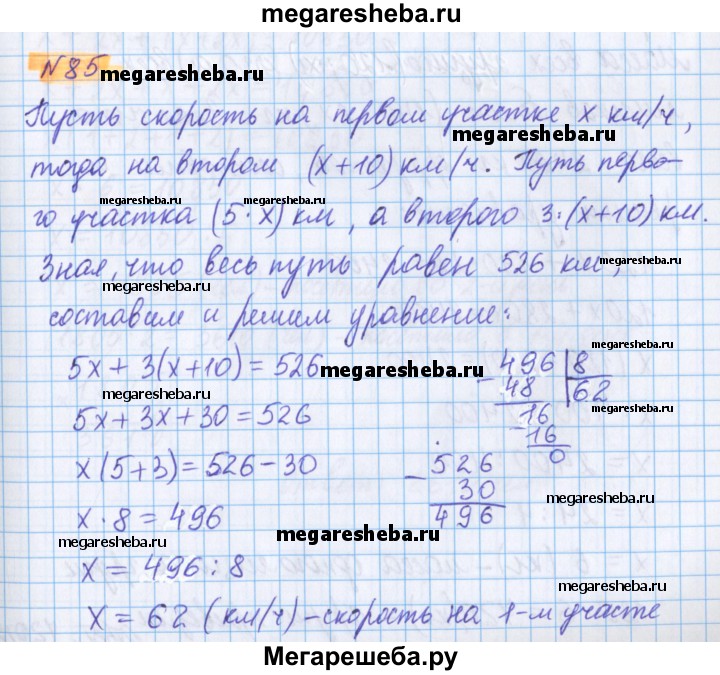 megaresheba.ru
N 85 megaresheba.ru
Пусть скорость на первом участке x км/ч,
megaresheba.ru
тогда на втором (x+10) км/ч. Путь перво-
megaresheba.ru megaresheba.ru
го участка (5·x) км, а второго 3:(x+10) км.
megaresheba.ru
Зная, что весь путь равен 526 км,
megaresheba.ru
составим и решим уравнение:
5x + 3(x+10) = 526 megaresheba.ru
5x + 3x + 30 = 526
x(5+3) = 526 - 30
x · 8 = 496
x = 496 : 8
x = 62 (км/ч) - скорость на 1-м участе
- 496 | 8
48 | 62
megaresheba.ru
- 16
16
0
- 526
30
496
megaresheba.ru
megaresheba.ru
megaresheba.ru
megaresheba.ru
Мегарешеба.ру